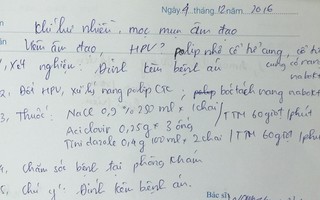 Ngày 4 tháng 12 năm 2016
khí hư nhiều, mọc mụn âm đạo
Viêm âm đạo, HPV? polip nhỏ cổ tử cung,
1, Xét nghiệm: Đính kèm bệnh án
2, Đốt HPV, xử lý nang polip CTC, bóc tách nang naboth
3, Thuốc: NaCl 0,9% 250 ml x 1 chai / TTM 60 giọt 1 phút
Aciclovir 0,25g x 3 ống
Tinidazole 0,4g 100ml x 2 chai / TTM 60 giọt 1 phút
4, Chăm sóc bệnh tại phòng khám
5, Chú ý: Đính kèm bệnh án.
Bác sĩ